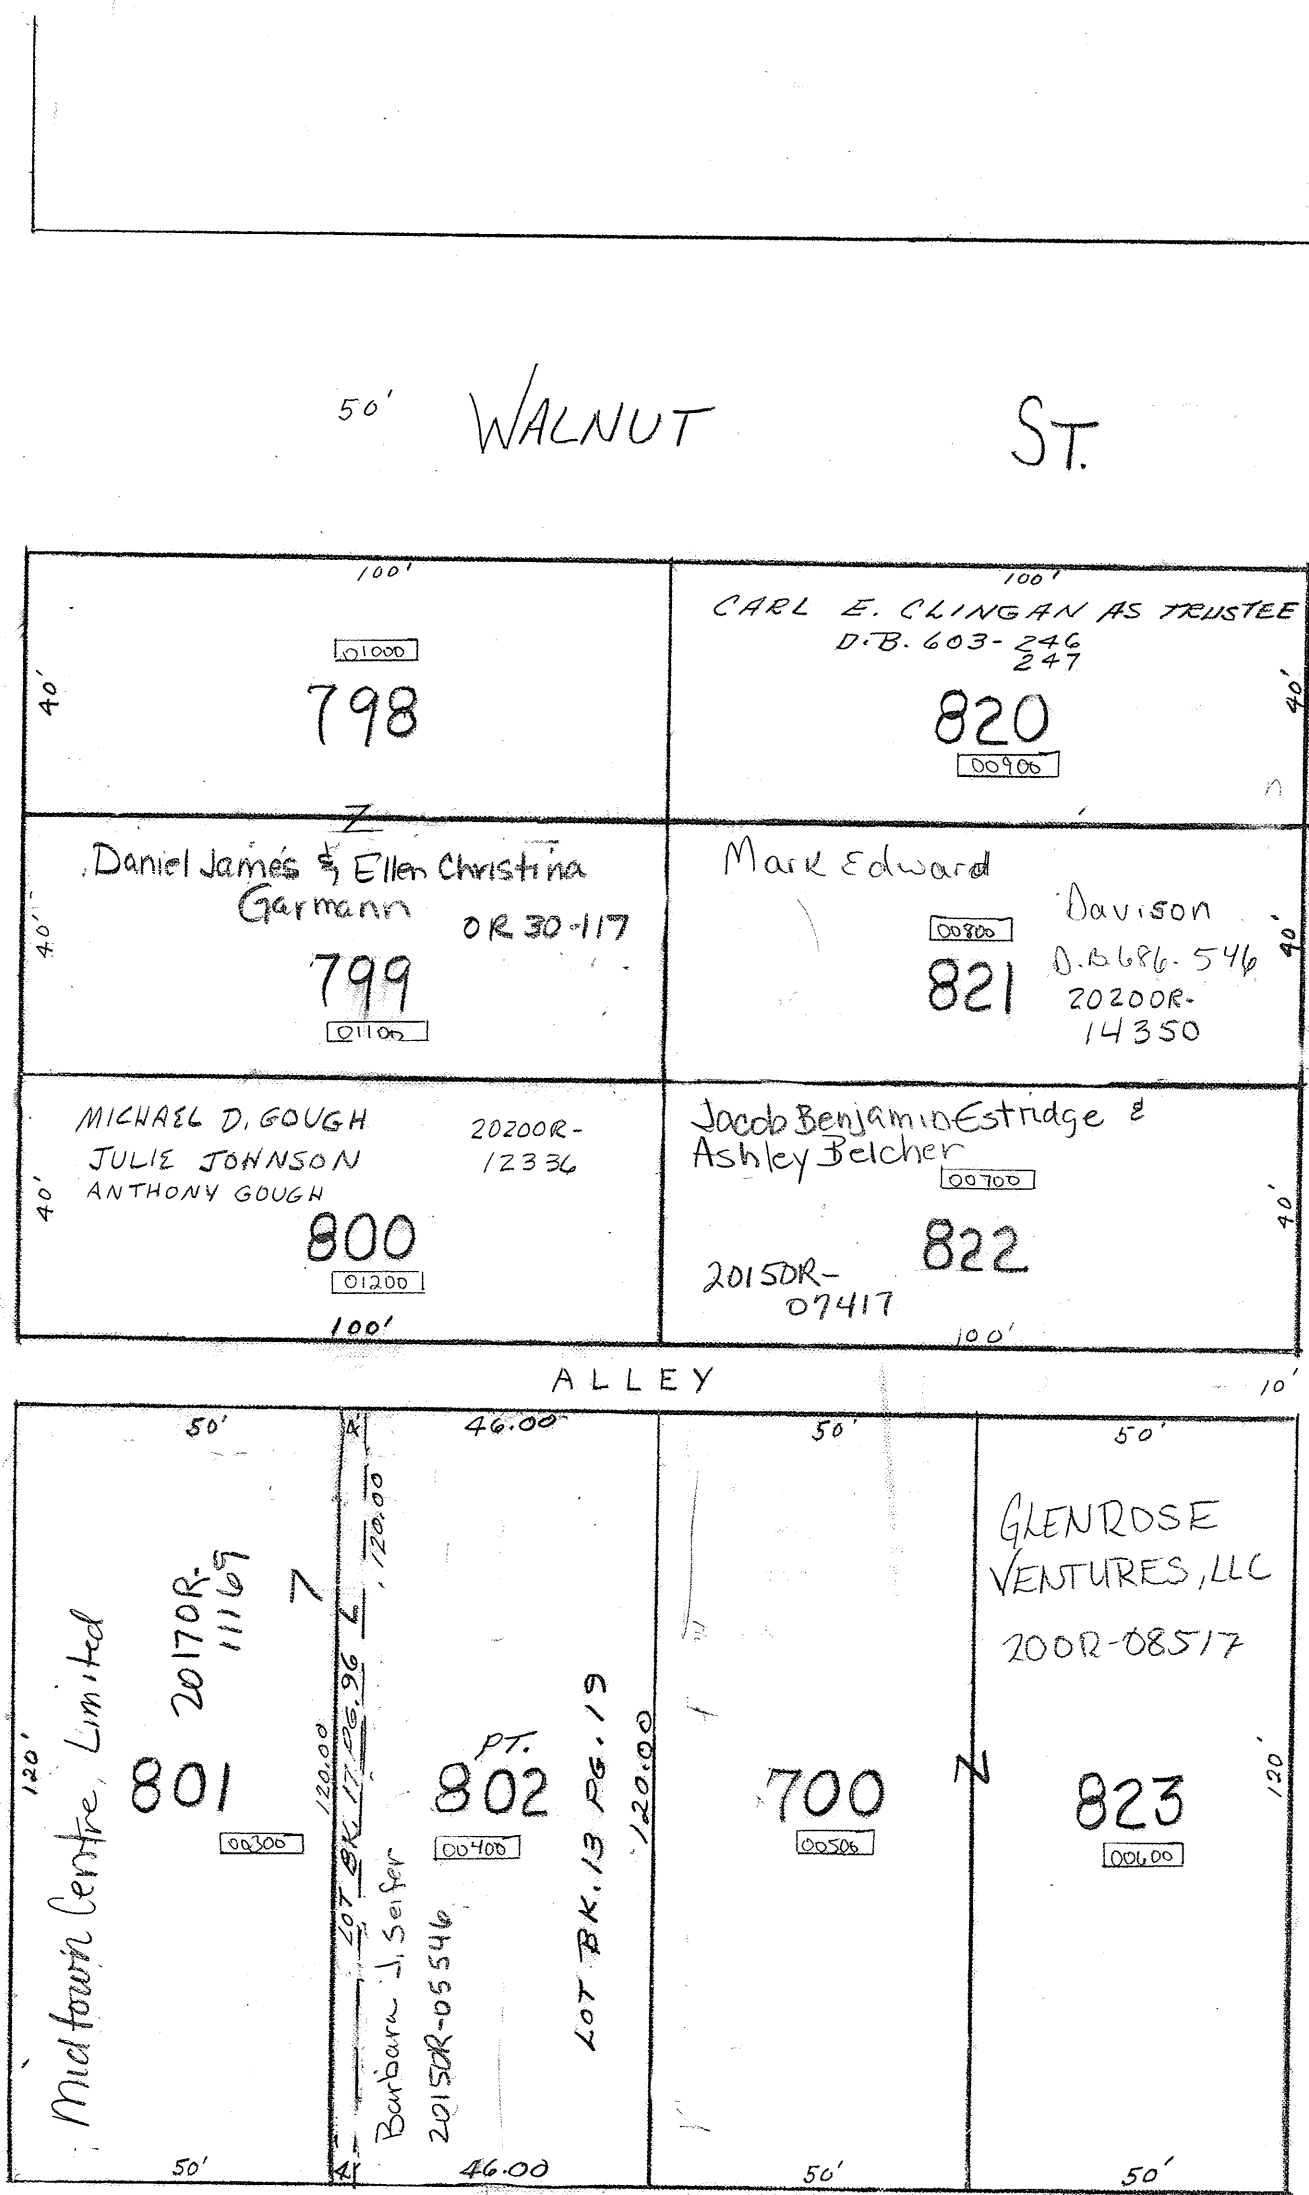 50' WALNUT ST.
100'
01000
798
40'
100'
CARL E. CLINGAN AS TRUSTEE
D.B. 603-246
247
820
00900
40'
7
Daniel James & Ellen Christina
Garmann
OR 30-117
799
01100
40'
Mark Edward
Davison
00800
821
D.B. 686-546
2020OR-
14350
40'
MICHAEL D. GOUGH
JULIE JOHNSON
ANTHONY GOUGH
2020OR-
12336
800
01200
40'
100'
Jacob Benjamin Estridge &
Ashley Belcher
00700
822
2015OR-
07417
40'
100'
ALLEY
10'
50'
4'
46.00
50'
50'
Midtown Centre, Limited
2017OR-
11169
7
801
00300
120'
120.00
LOT BK. 17 PG. 96
120.00
PT.
802
00400
Barbara J. Seifer
2015OR-05546
LOT BK. 13 PG. 19
120.00
700
00500
GLENROSE
VENTURES, LLC
200R-08517
823
00600
120'
50'
4'
46.00
50'
50'